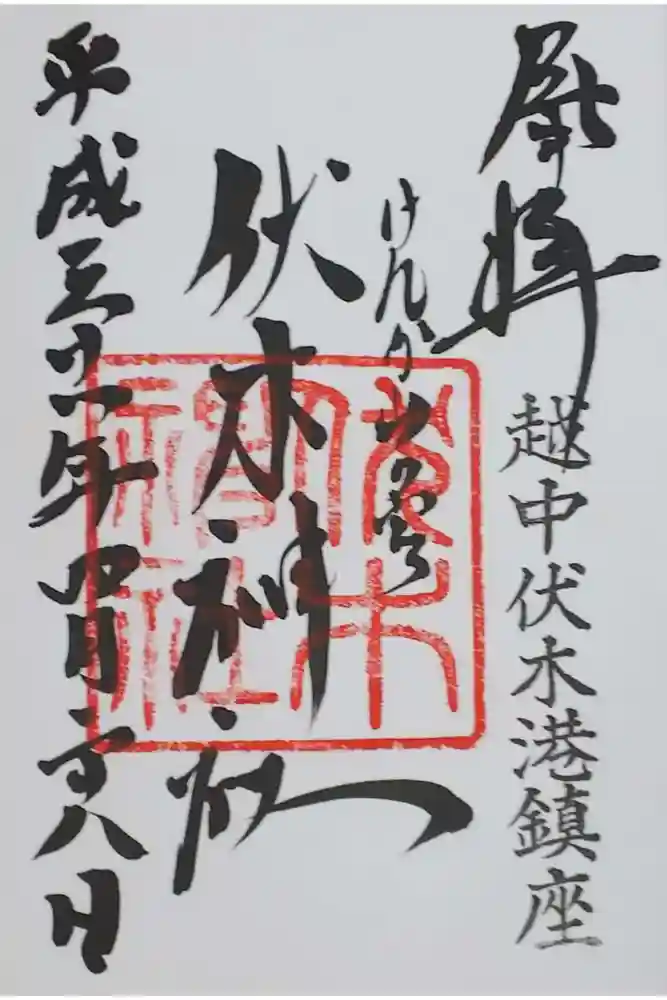 奉拝
越中伏木港鎮座
けんか山の宮
伏木神社
平成三十一年四月二十八日
伏木神社